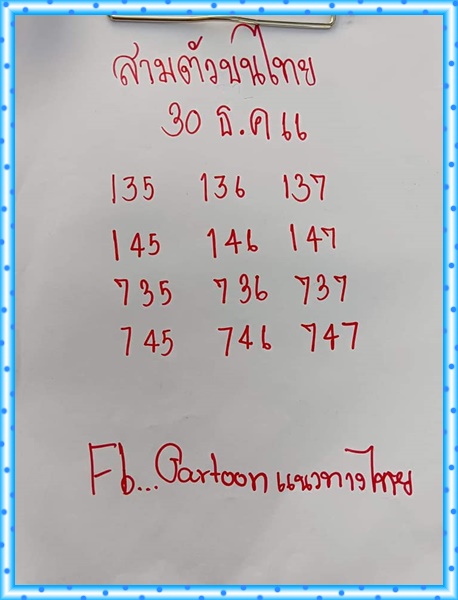 สามตัวบนไทย
30 ธ.ค 66
135 136 137
145 146 147
735 736 737
745 746 747
Fb... Partoon แนวทางไทย